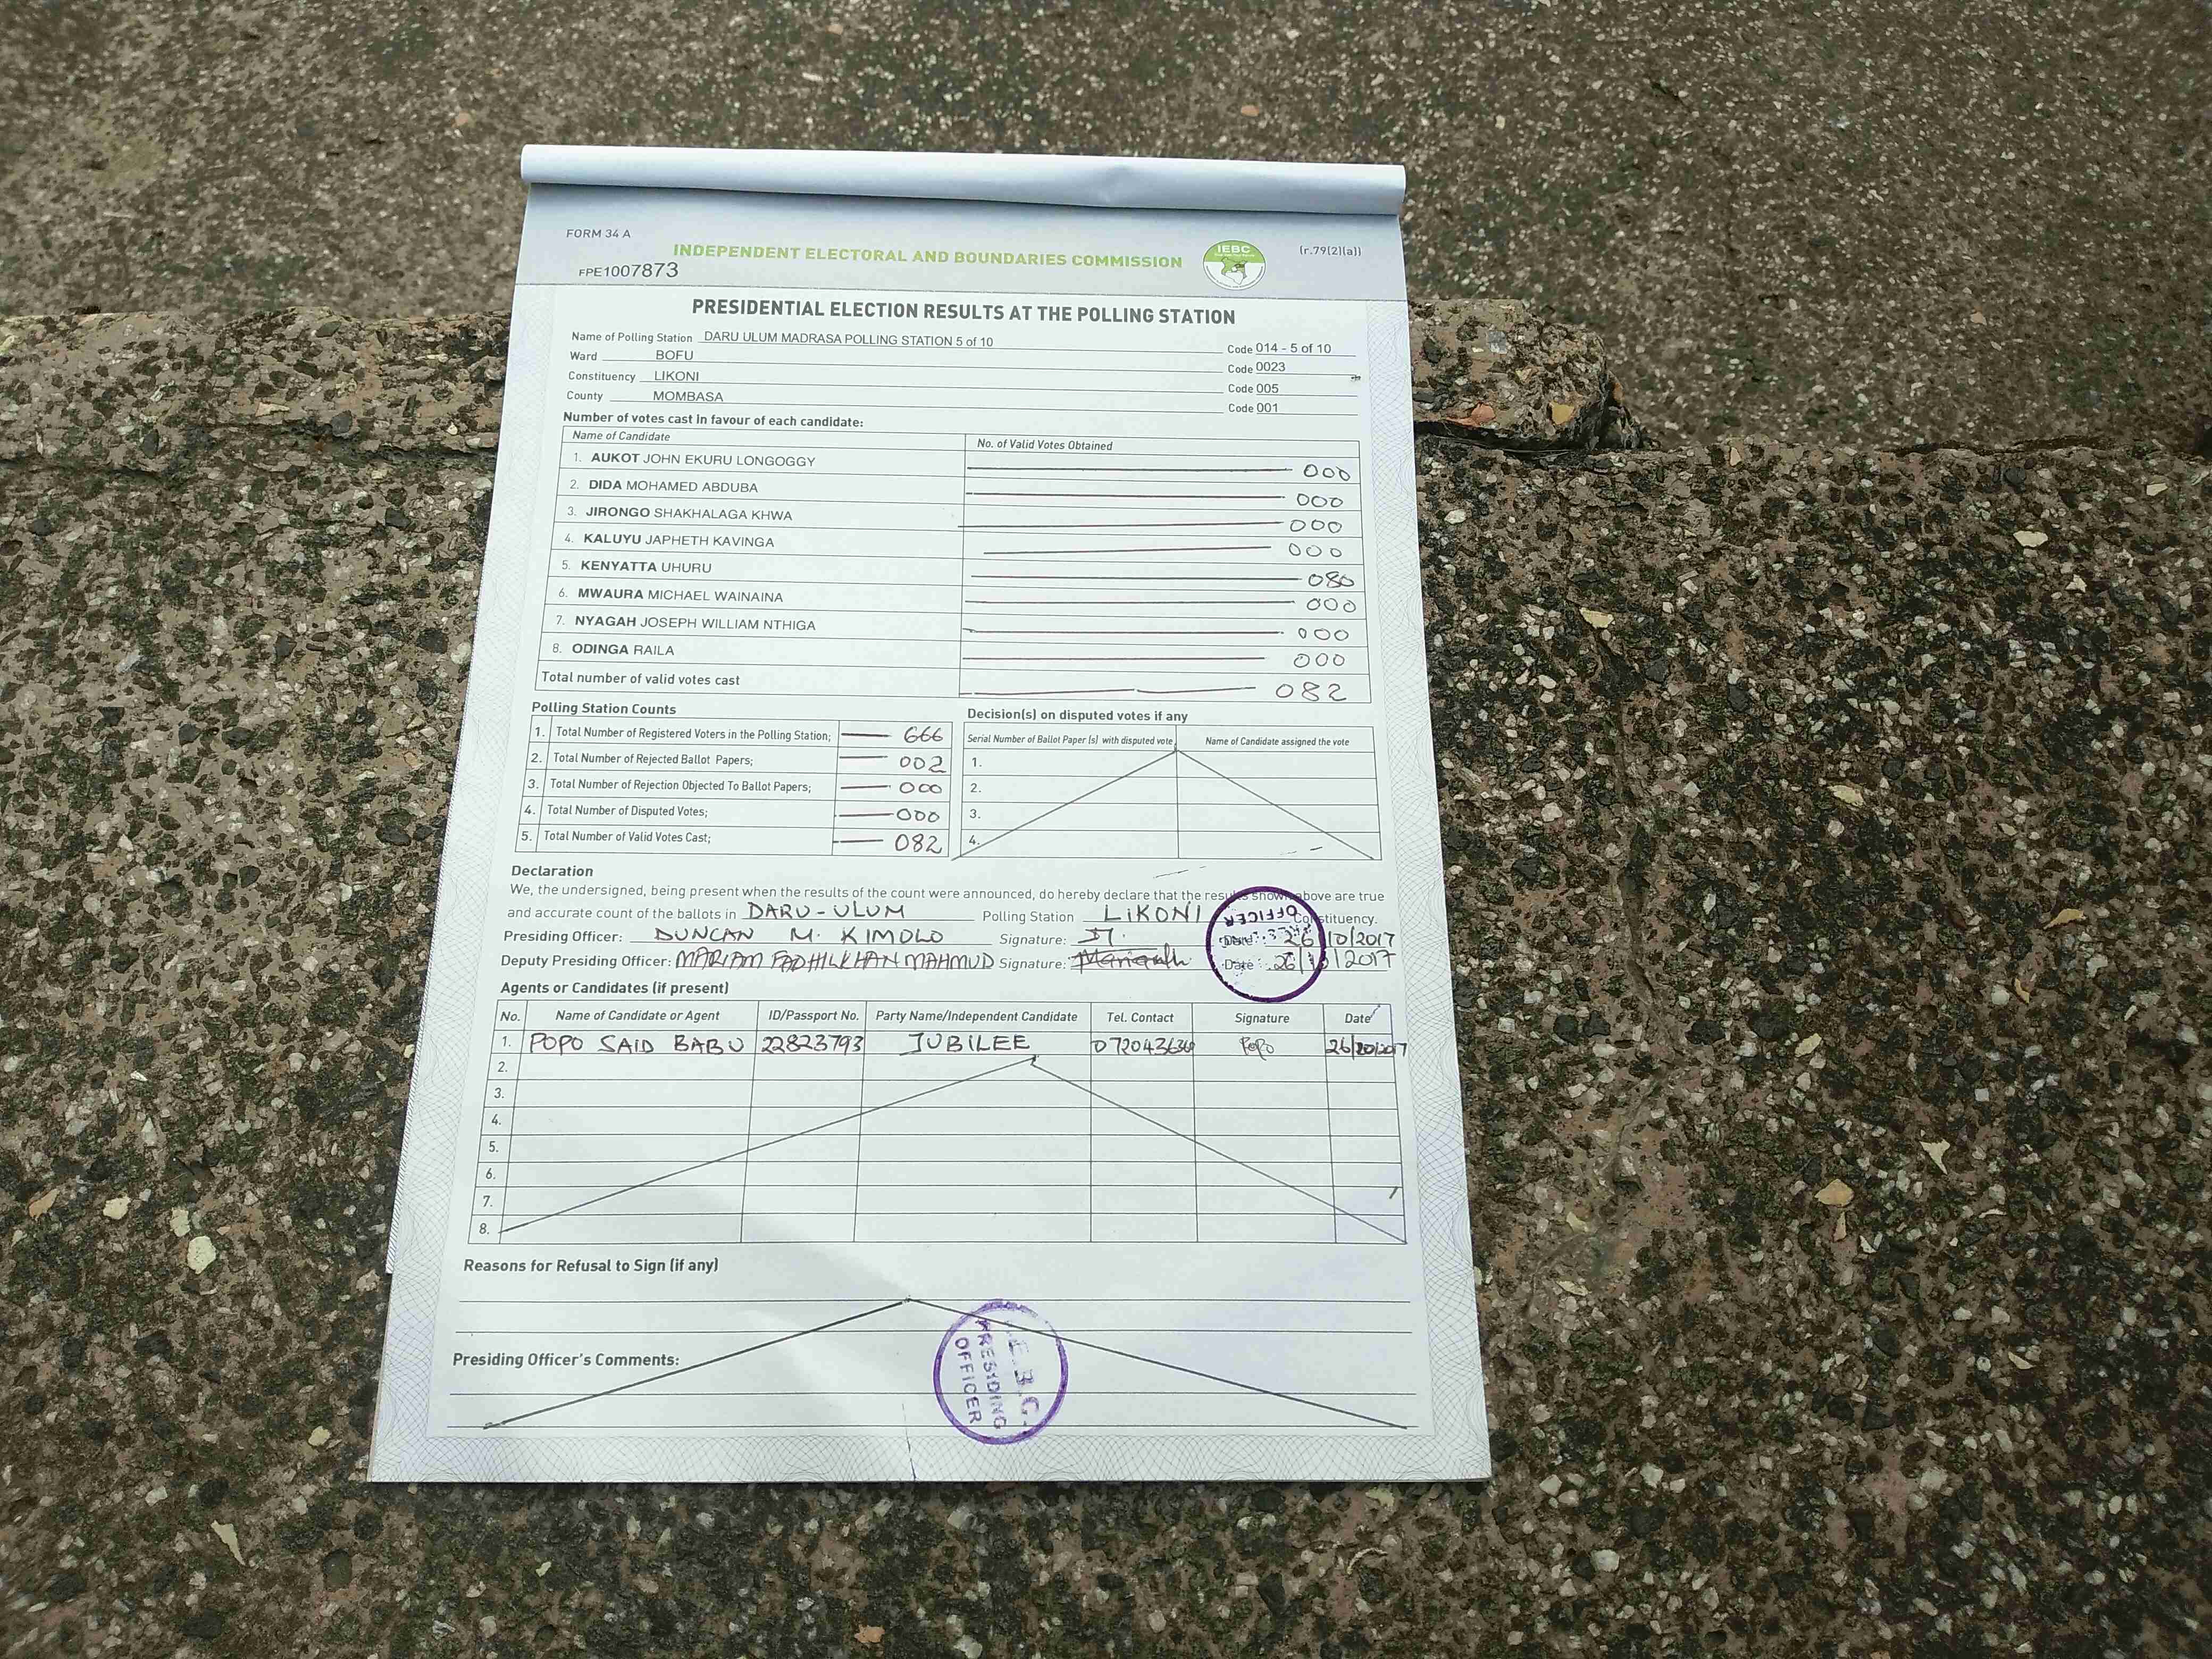 FORM 34 A
INDEPENDENT ELECTORAL AND BOUNDARIES COMMISSION
IEBC
(r.79(2)(a))
FPE1007873
PRESIDENTIAL ELECTION RESULTS AT THE POLLING STATION
Name of Polling Station DARU ULUM MADRASA POLLING STATION 5 of 10 Code 014 - 5 of 10
Ward BOFU Code 0023
Constituency LIKONI Code 005
County MOMBASA Code 001
Number of votes cast in favour of each candidate:
Name of Candidate No. of Valid Votes Obtained
1. AUKOT JOHN EKURU LONGOGGY 000
2. DIDA MOHAMED ABDUBA 000
3. JIRONGO SHAKHALAGA KHWA 000
4. KALUYU JAPHETH KAVINGA 000
5. KENYATTA UHURU 080
6. MWAURA MICHAEL WAINAINA 000
7. NYAGAH JOSEPH WILLIAM NTHIGA 000
8. ODINGA RAILA 000
Total number of valid votes cast 082
Polling Station Counts
1. Total Number of Registered Voters in the Polling Station; 666
2. Total Number of Rejected Ballot Papers; 002
3. Total Number of Rejection Objected To Ballot Papers; 000
4. Total Number of Disputed Votes; 000
5. Total Number of Valid Votes Cast; 082
Decision(s) on disputed votes if any
Serial Number of Ballot Paper (s) with disputed vote Name of Candidate assigned the vote
1.
2.
3.
4.
Declaration
We, the undersigned, being present when the results of the count were announced, do hereby declare that the results shown above are true
and accurate count of the ballots in DARU-ULUM Polling Station LIKONI Constituency.
Presiding Officer: DUNCAN M. KIMOLO Signature: Date: 26/10/2017
Deputy Presiding Officer: MARIAM FADHILKHAN MAHMUD Signature: Date: 26/10/2017
OFFICER
Agents or Candidates (if present)
No. Name of Candidate or Agent ID/Passport No. Party Name/Independent Candidate Tel. Contact Signature Date
1. POPO SAID BABU 22823793 JUBILEE Popo
2.
3.
4.
5.
6.
7.
8.
Reasons for Refusal to Sign (if any)
Presiding Officer's Comments:
I.E.B.C.
PRESIDING
OFFICER